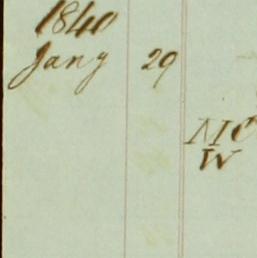 1840
Jany 29
MC
W